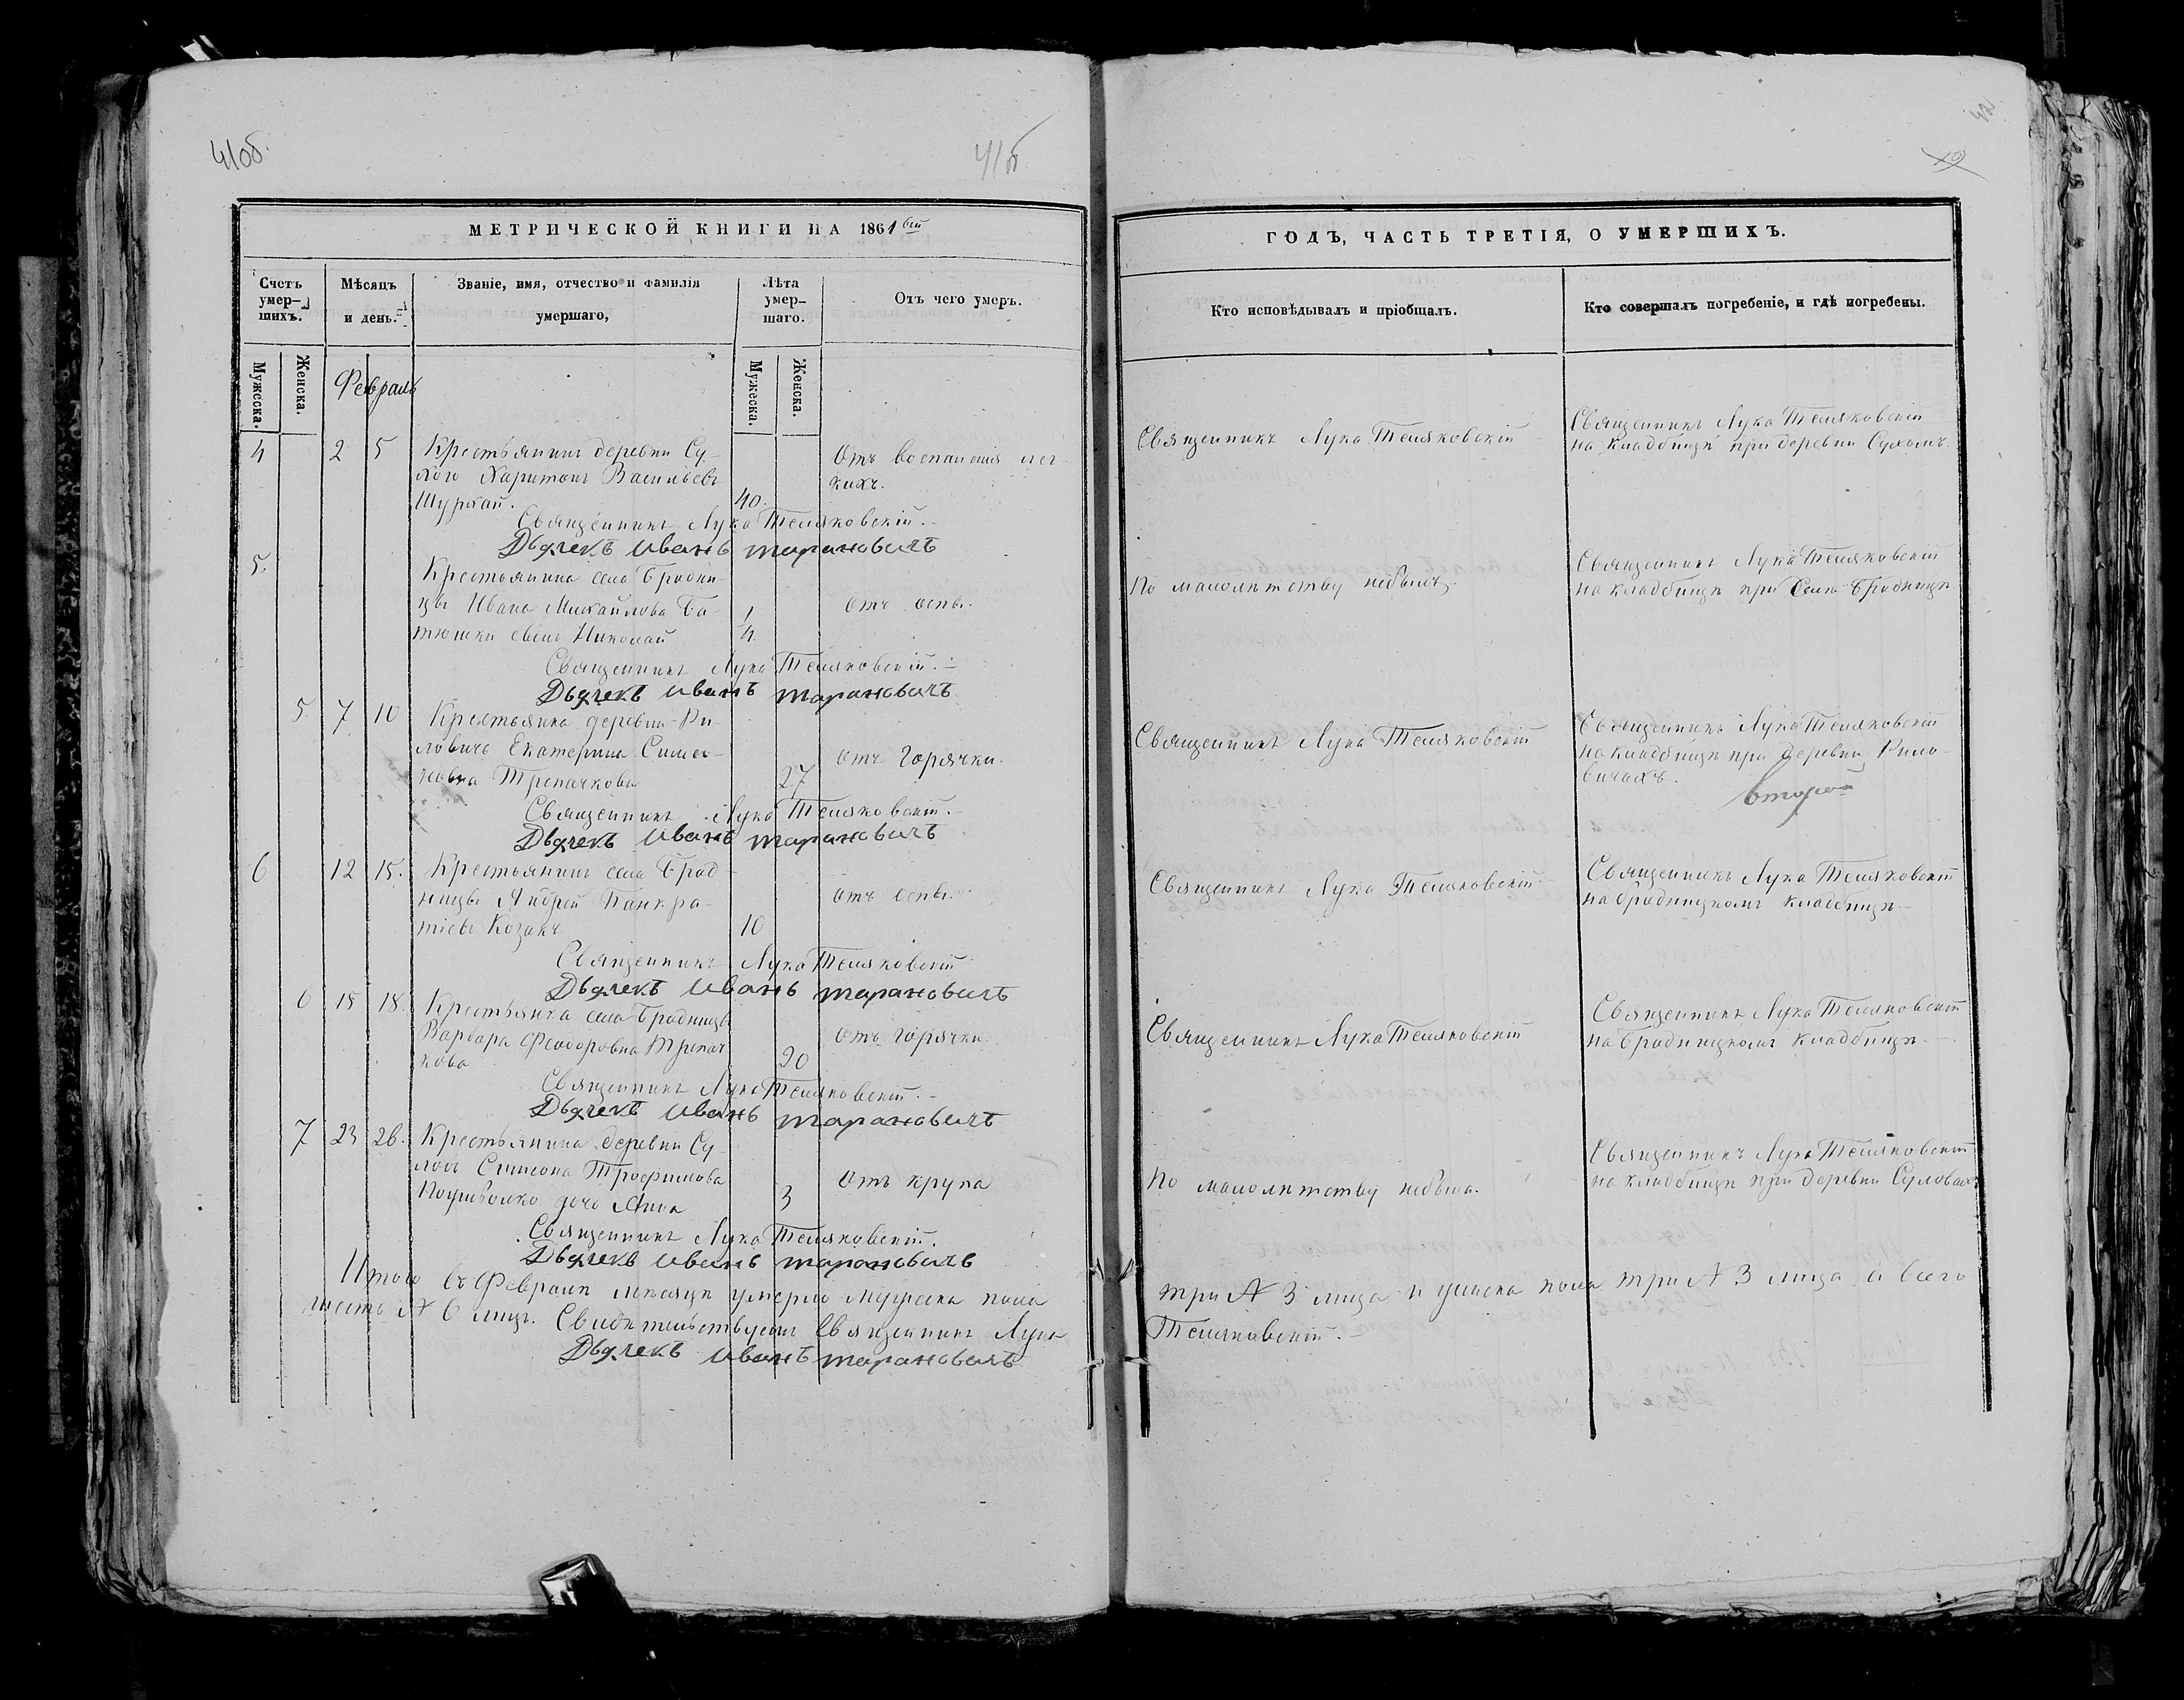 41об.
41об
МЕТРИЧЕСКОЙ КНИГИ НА 1861 вый
Счетъ умер-шихъ.
Мѣсяцъ и день.
Званіе, имя, отчество и фамилія умершаго,
Лѣта умер-шаго.
Отъ чего умеръ.
Мужеска.
Женска.
Мужеска.
Женска.
Февраль
4 2 5 Крестьянинъ деревни Су-
Харитонъ Васильевъ
40
Отъ воспаленія лег-
кихъ.
Священникъ Лука Теляковскій.
Дьячекъ Иванъ Тарановичъ
5. Крестьянина села Бродни-
цы Ивана Михайлова Ба-
тюшки сынъ Николай
1
4.
Отъ оспы.
Священникъ Лука Теляковскій.
Дьячекъ Иванъ Тарановичъ
5 7 10 Крестьянка деревни Ри-
ловичъ Екатерина Симео-
новна Трепачкова
27
Отъ горячки.
Священникъ Лука Теляковскій.
Дьячекъ Иванъ Тарановичъ
6 12 15. Крестьянинъ села Брод-
ницы Андрей Панкра-
тіевъ Козакъ
10
Отъ оспы.
Священникъ Лука Теляковскій
Дьячекъ Иванъ Тарановичъ
6 15 18. Крестьянка села Бродницы
Варвара Феодоровна Трепач-
кова
90
Отъ горячки.
Священникъ Лука Теляковскій.
Дьячекъ Иванъ Тарановичъ
7 23 26. Крестьянина деревни Су-
Симеона Трофимова
дочь Анна
3
Отъ крупа
Священникъ Лука Теляковскій.
Дьячекъ Иванъ Тарановичъ
Итого въ Февралѣ мѣсяцѣ умерло мужеска пола
шесть № 6 лицъ. Свидѣтельствуетъ Священникъ Лука
Дьячекъ Иванъ Тарановичъ
ГОДЪ, ЧАСТЬ ТРЕТІЯ, О УМЕРШИХЪ.
Кто исповѣдывалъ и пріобщалъ.
Кто совершалъ погребеніе, и гдѣ погребены.
Священникъ Лука Теляковскій
Священникъ Лука Теляковскій
на кладбищѣ при деревни
По малолѣтству небылъ.
Священникъ Лука Теляковскій
на кладбищѣ при селѣ Бродницѣ
Священникъ Лука Теляковскій
Священникъ Лука Теляковскій
на кладбищѣ при деревни Рило-
вичахъ.
второй
Священникъ Лука Теляковскій
Священникъ Лука Теляковскій
на Бродницкомъ кладбищѣ.
Священникъ Лука Теляковскій
Священникъ Лука Теляковскій
на Бродницкомъ кладбищѣ.
По малолѣтству небыла.
Священникъ Лука Теляковскій
на кладбищѣ при деревни
три № 3 лица и женска пола три № 3 лица а всего
Теляковскій.